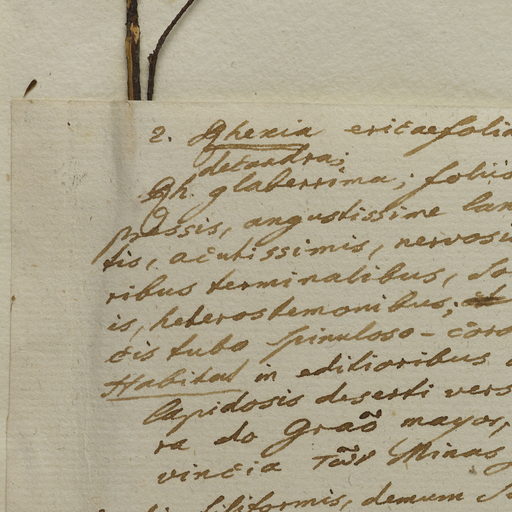 2. Rhexia ericaefolia
decandra;
Rh. glaberrima; foliis
pressis, angustissime lan
tis, acutissimis, nervosis
ribus terminalibus, so
is, heterostemonibus;
cis tubo spinuloso-coro
Habitat in editioribus
lapidosis deserti vers
ra do Graõ mayor,
vincia Minas
filiformis, demum